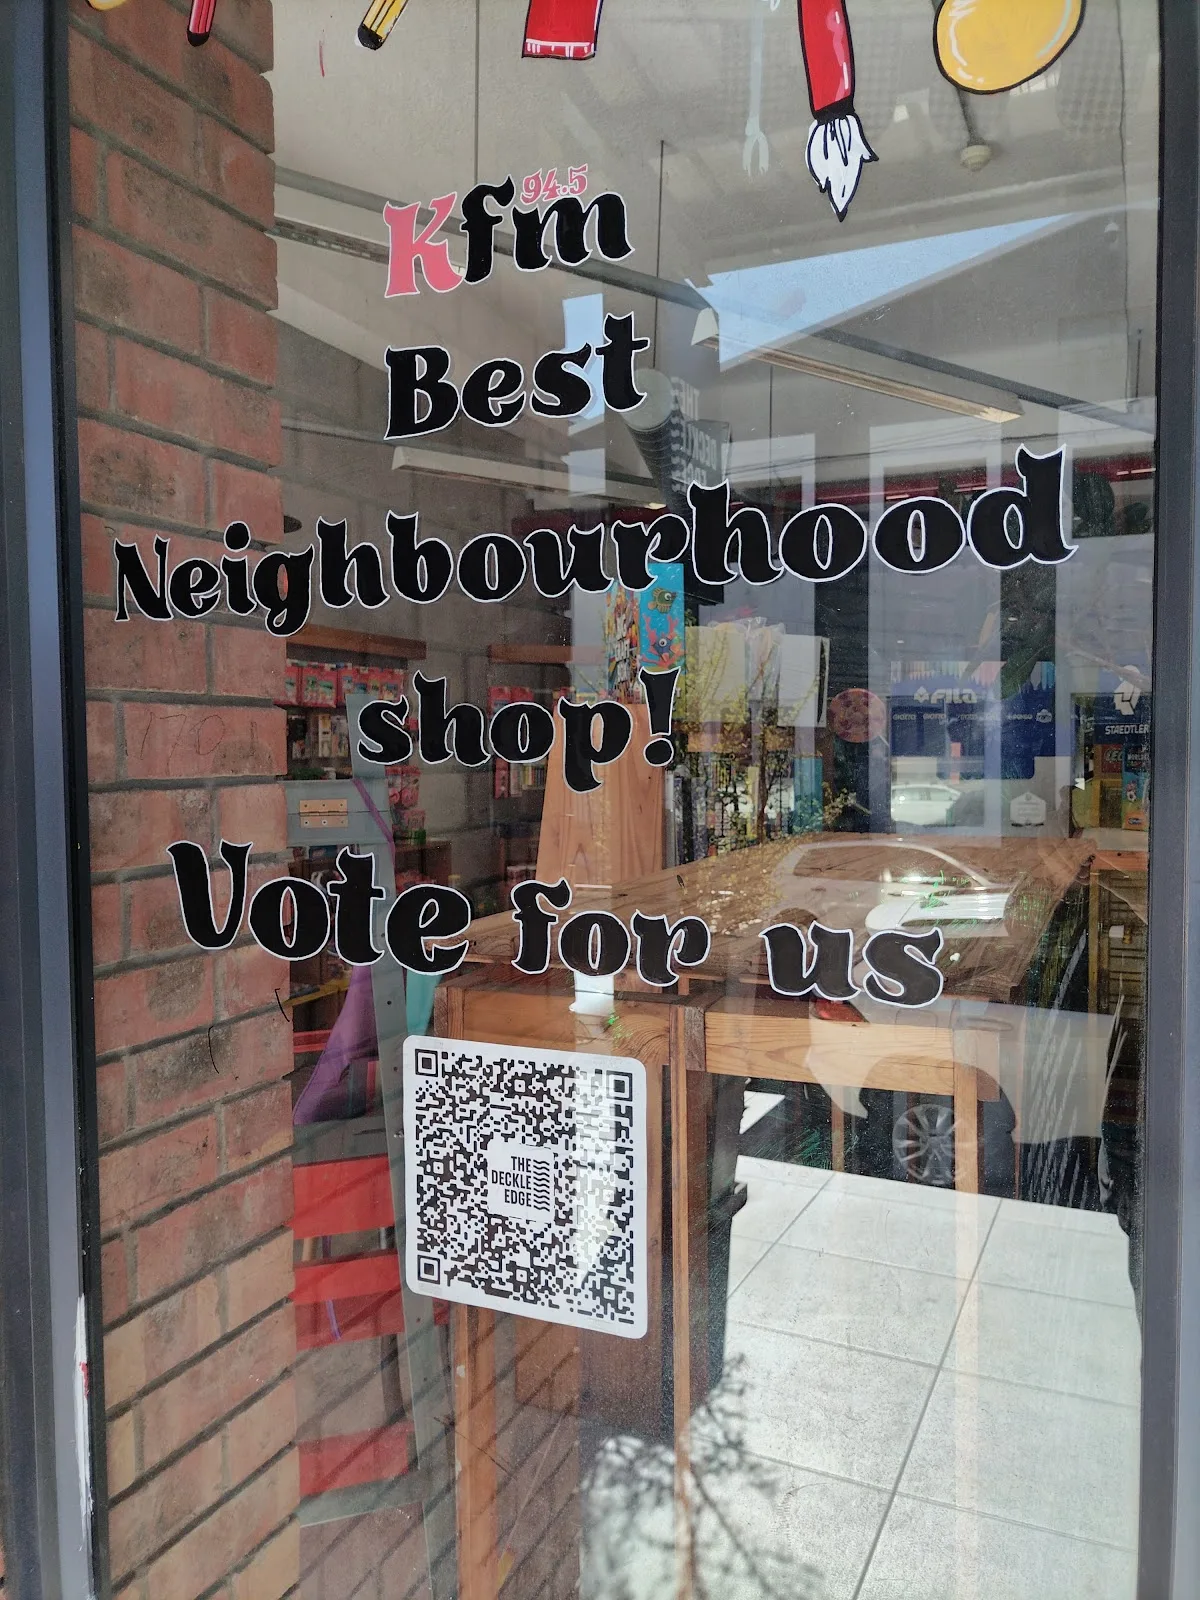 94.5
Kfm
Best
Neighbourhood
shop!
Vote for us
THE
DECKLE
EDGE
FILA
STAEDTLER